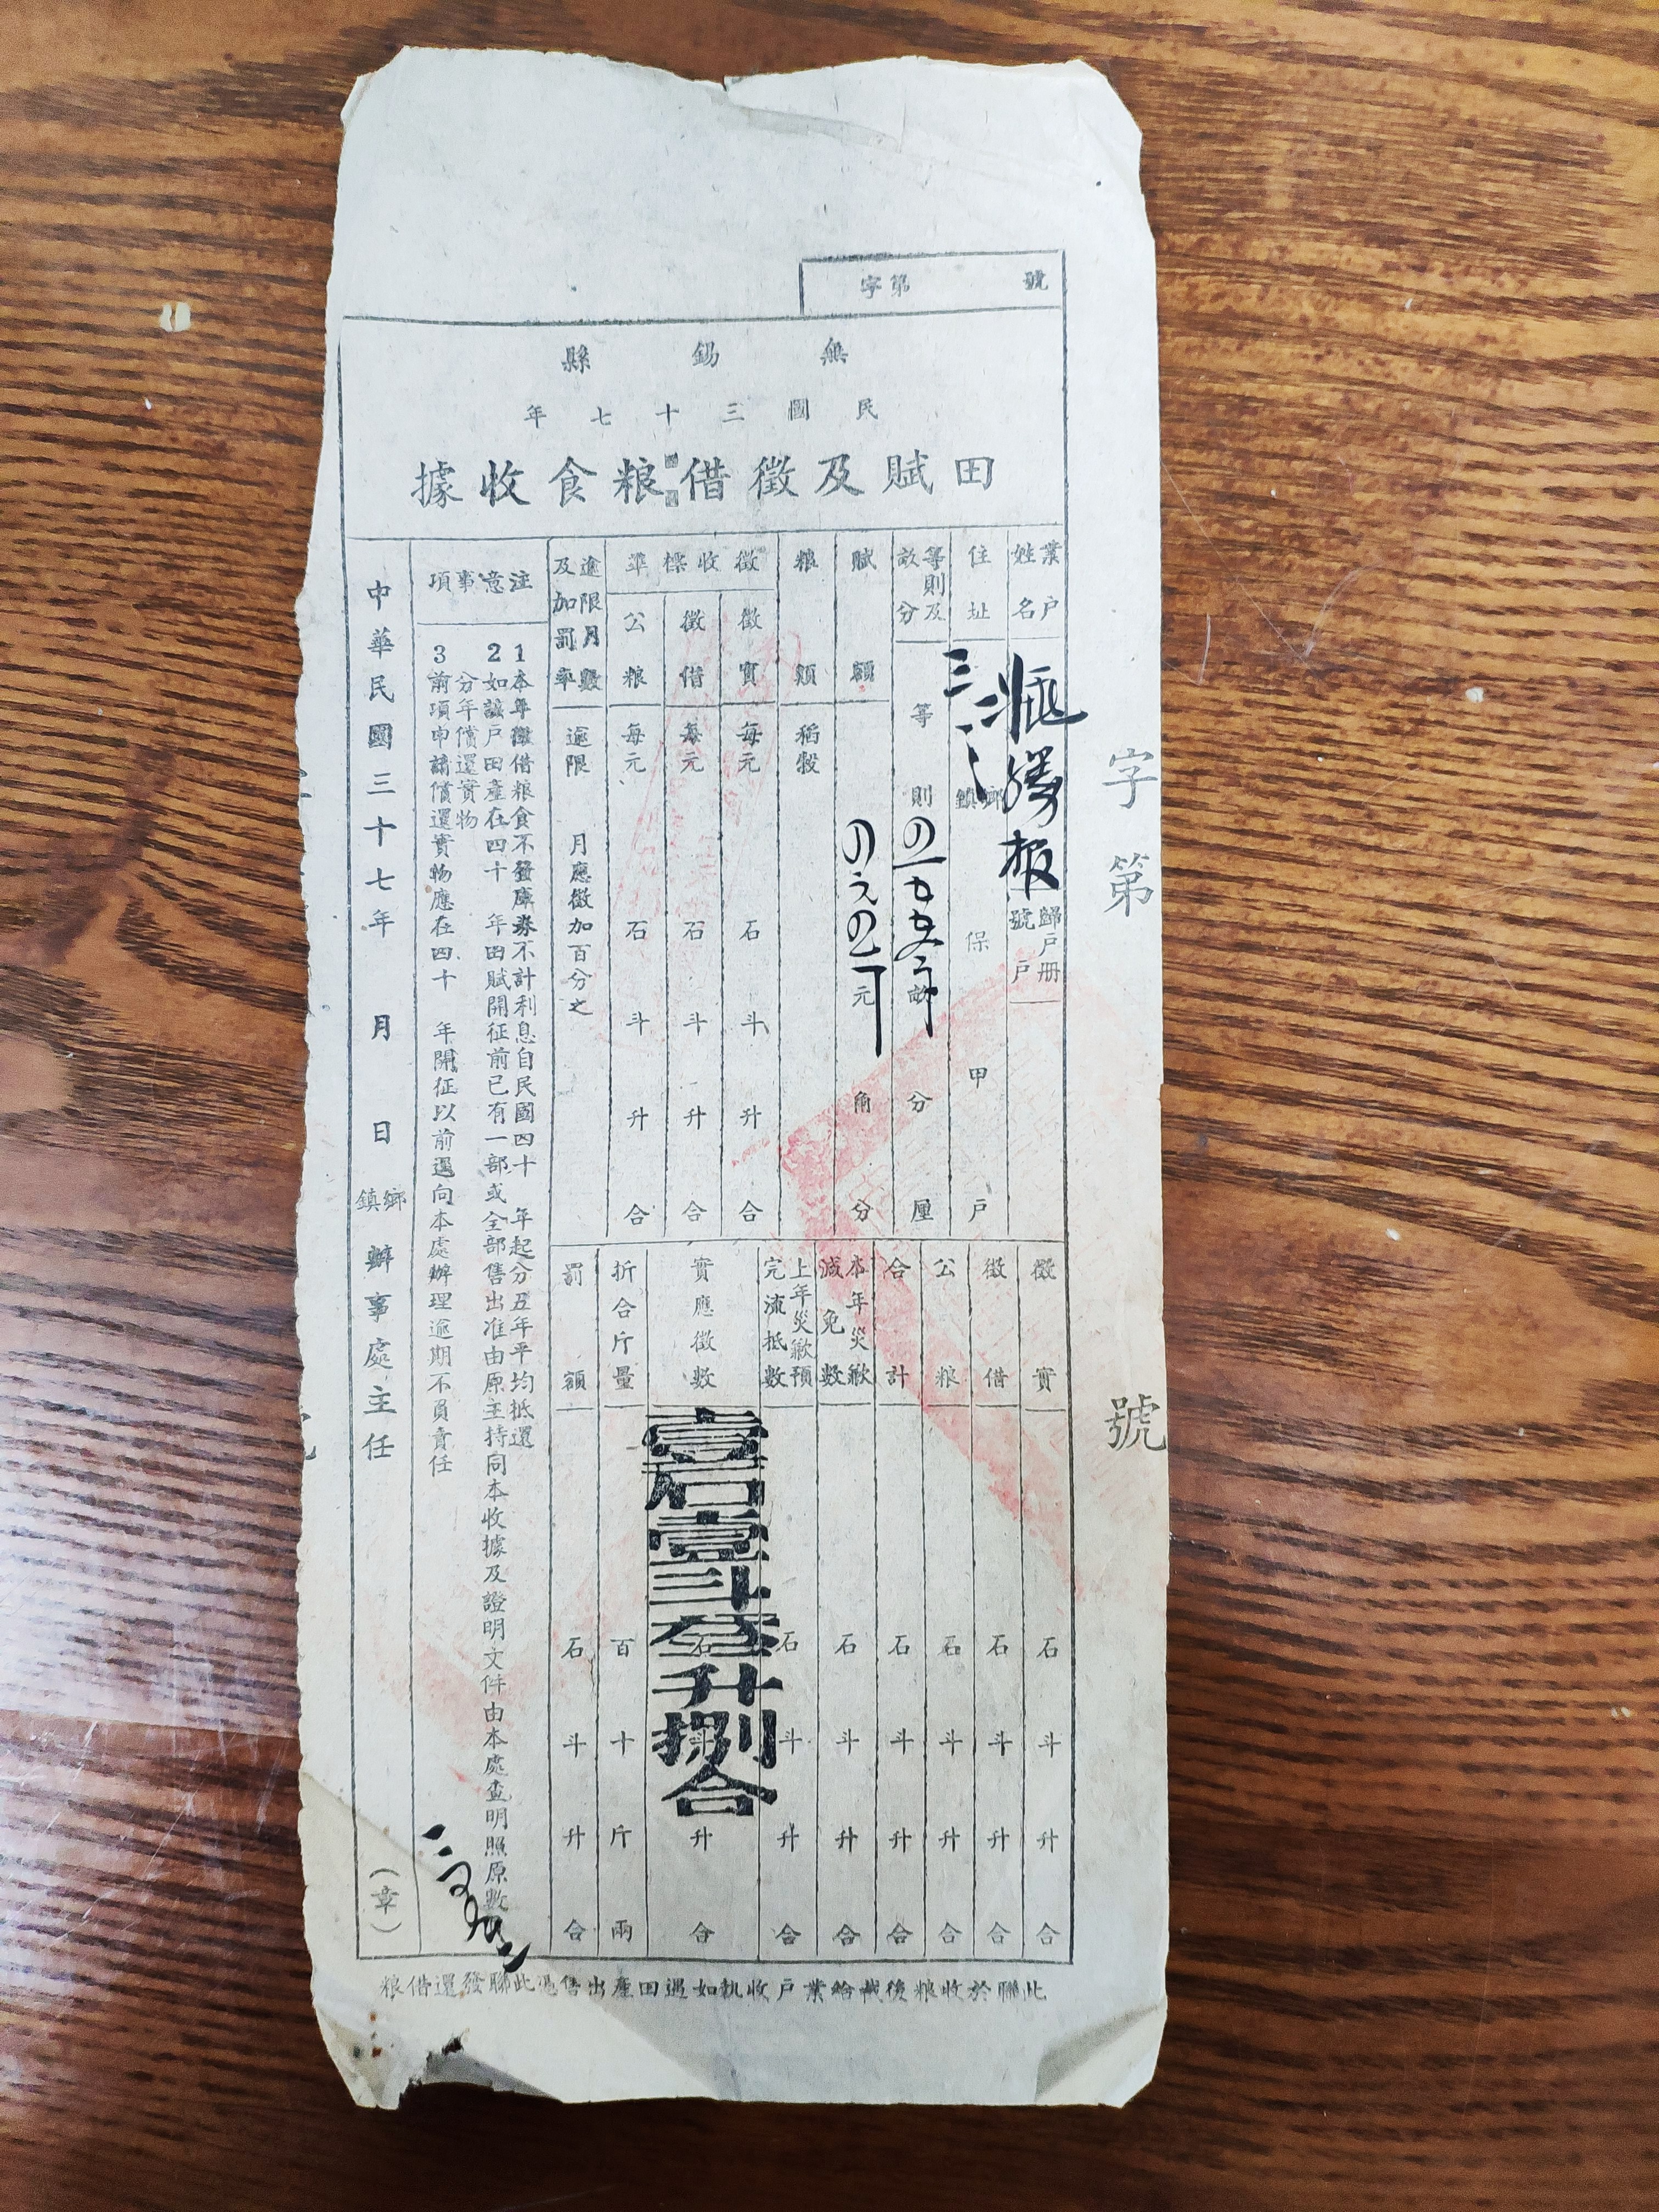 號　第字
無錫縣
民國三十七年
田賦及徵借粮食收據
業戶姓名
勝根
歸戶册號　戶
住址
鄉鎮　保　甲　戶
等則及畝分
等　則　畝　分　厘
賦額
元　角　分
粮額
稻穀
徵收標準
徵實　每元　石　斗　升　合
徵借　每元　石　斗　升　合
公粮　每元　石　斗　升　合
逾限月數及加罰率
逾限　月應徵加百分之
徵實　石　斗　升　合
徵借　石　斗　升　合
公粮　石　斗　升　合
合計　石　斗　升　合
本年災歉減免數　石　斗　升　合
上年災歉預完流抵數　石　斗　升　合
實應徵數　石　斗　升　合
壹石壹斗叁升捌合
折合斤量　百　十　斤　兩
罰額　石　斗　升　合
注意事項
1本年徵借粮食不發庫券不計利息自民國四十　年起分五年平均抵還
2如該戶田產在四十　年田賦開征前已有一部或全部售出准由原主持同本收據及證明文件由本處查明照原數
分年償還實物
3前項申請償還實物應在四十　年開征以前逕向本處辦理逾期不負責任
中華民國三十七年　月　日　鄉鎮辦事處主任　（章）
此聯於收粮後截給業戶收執如遇田產出售憑此聯發還借粮
字第　號